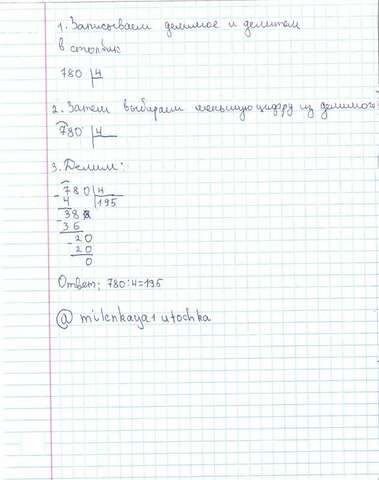 1. Записываем делимое и делителем
в столбик
780 4
2. Затем выбираем меньшую цифру из делимого
780 4
3. Делим:
- 780 4
4 195
- 38
36
- 20
20
0
Ответ: 780:4=195
@ milenkaya1utochka